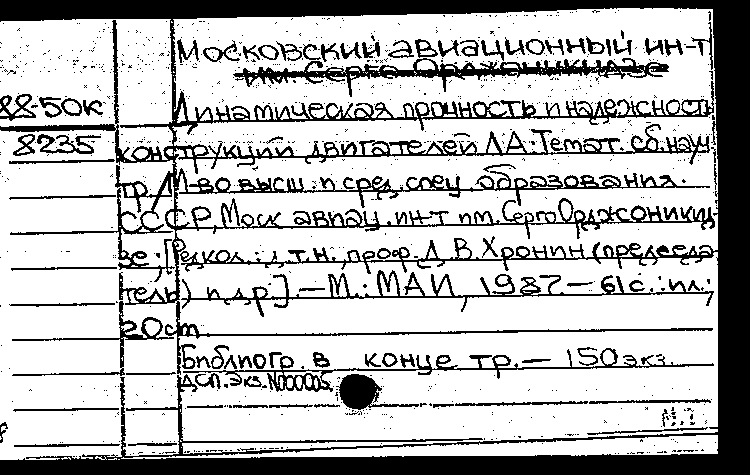 Московский авиационный ин-т
им. Серго Орджоникидзе
88-50к
Динамическая прочность и надежность
8235
конструкций двигателей ЛА: Темат. сб. науч
тр. / М-во высш. и сред. спец. образования.
СССР, Моск авиац. ин-т им. Серго Орджоникид-
зе ; [Редкол.: д.т.н., проф. Д. В. Хронин (председа-
тель) и др.]. — М. : МАИ, 1987. — 61с. : ил. ;
20см.
Библиогр. в конце тр. — 150 экз.
ДСП. Экз. №00005.